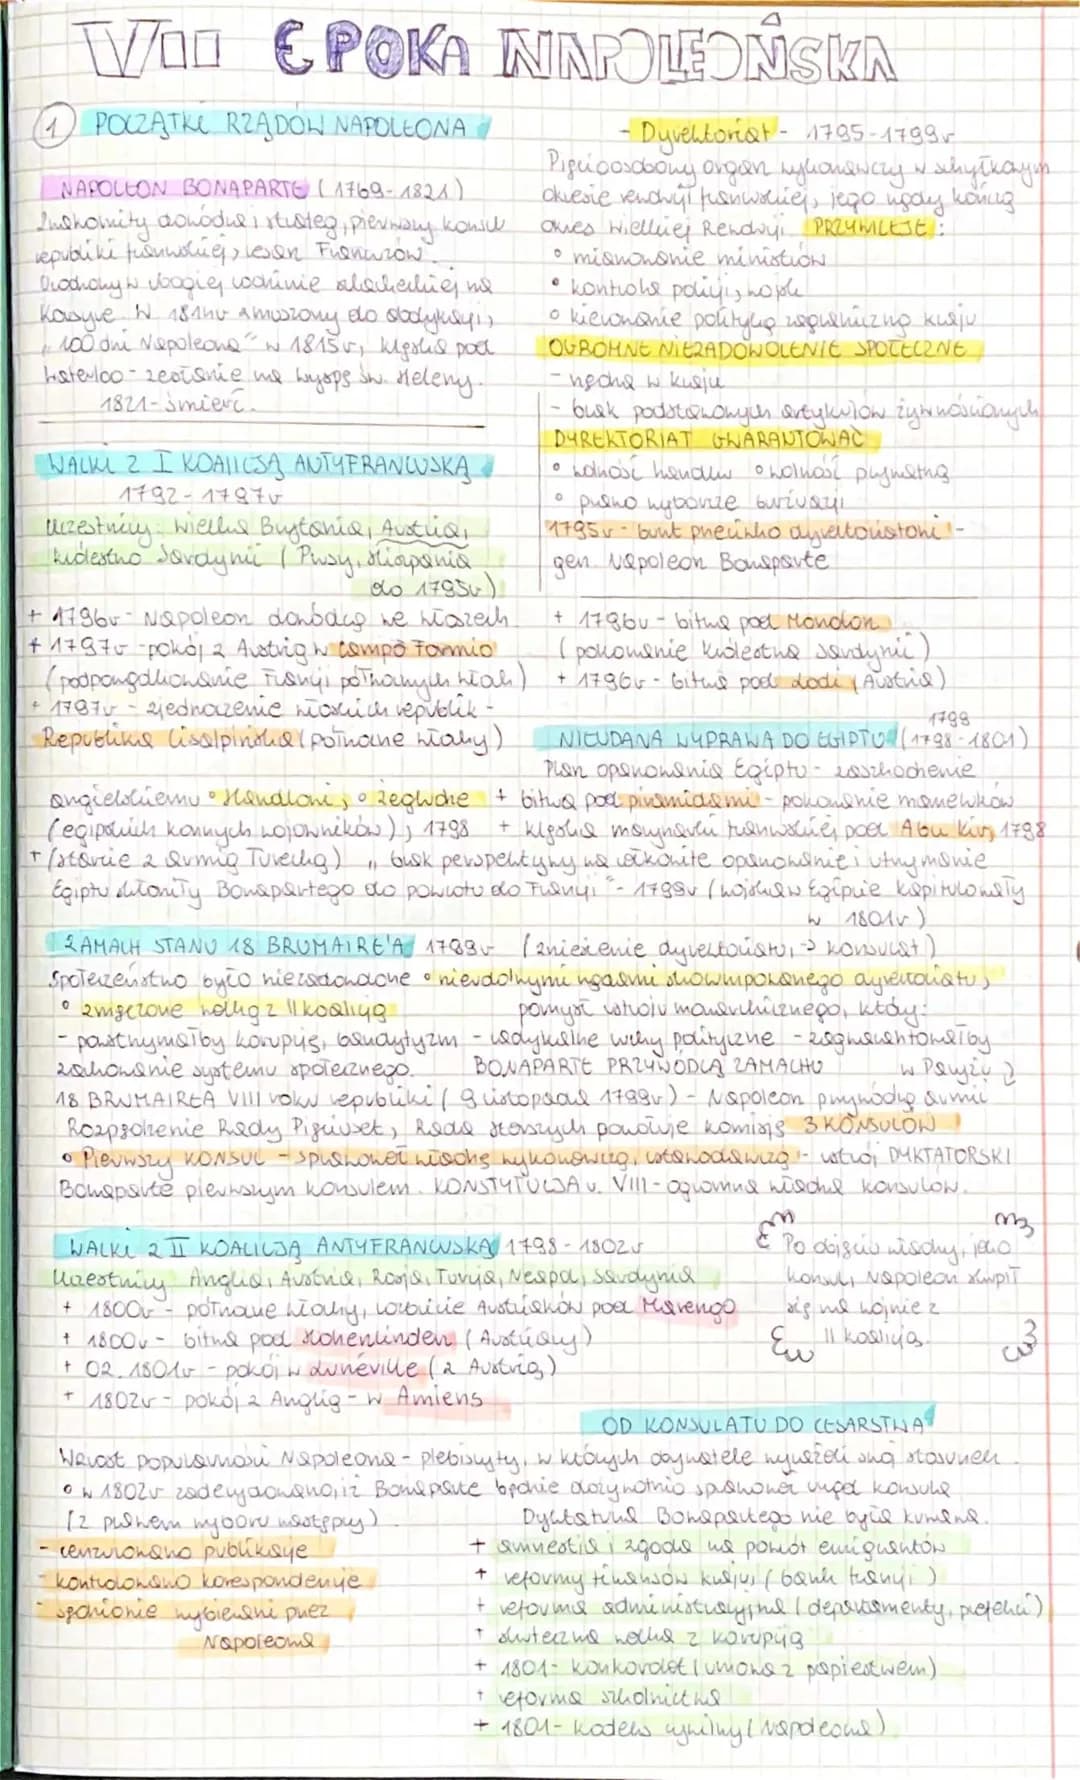 VII EPOKA NAPOLEOŃSKA
1 POCZĄTKI RZĄDÓW NAPOLEONA
NAPOLEON BONAPARTE (1769-1821)
Znakomity dowódca i strateg, pierwszy konsul
republiki francuskiej, cesarz Francuzów.
Urodzony w ubogiej rodzinie szlacheckiej na
Korsyce. W 1814r zmuszony do abdykacji,
"100 dni Napoleona" w 1815r, klęska pod
Waterloo - zesłanie na wyspę św. Heleny.
1821 - śmierć.
WALKI Z I KOALICJĄ ANTYFRANCUSKĄ
1792-1797r
Uczestnicy: Wielka Brytania, Austria,
Królestwo Sardynii (Prusy, Hiszpania
do 1795r)
+ 1796r - Napoleon dowódcą we Włoszech
+ 1797r - pokój z Austrią w Campo Formio
(podporządkowanie Francji północnych Włoch)
+ 1797r - zjednoczenie włoskich republik -
Republika Cisalpińska (północne Włochy)
- Dyrektoriat - 1795-1799r
Pięcioosobowy organ wykonawczy w schyłkowym
okresie rewolucji francuskiej, jego rządy kończą
okres Wielkiej Rewolucji. PRZYWILEJE:
• mianowanie ministrów
• kontrola policji, wojska
• kierowanie polityką zagraniczną kraju
OGROMNE NIEZADOWOLENIE SPOŁECZNE
- nędza w kraju
- brak podstawowych artykułów żywnościowych
DYREKTORIAT GWARANTOWAĆ
• wolność handlu • wolność prywatną
• prawo wyborcze burżuazji
1795r - bunt przeciwko dyrektoriatowi -
gen. Napoleon Bonaparte
+ 1796r - bitwa pod Mondovi
(pokonanie Królestwa Sardynii)
+ 1796r - bitwa pod Lodi (Austria)
NIEUDANA WYPRAWA DO EGIPTU (1798-1801)
1799
Plan opanowania Egiptu - zaszkodzenie
angielskiemu • Handlowi, • żegludze + bitwa pod piramidami - pokonanie mameluków
(egipskich konnych wojowników), 1798 + klęska marynarki francuskiej pod Abu Kir, 1798
+ (starcie z armią Turecką) "brak perspektywy na całkowite opanowanie i utrzymanie
Egiptu skłoniły Bonapartego do powrotu do Francji" - 1799r (wojska w Egipcie kapitulowały
w 1801r)
ZAMACH STANU 18 BRUMAIRE'A 1799r (zniesienie dyrektoriatu, → konsulat)
Społeczeństwo było niezadowolone • nieudolnymi rządami skorumpowanego dyrektoriatu,
• zmęczone walką z II koalicją pomysł ustroju monarchicznego, który:
- powstrzymałby korupcję, bandytyzm - radykalne ruchy polityczne - zagwarantowałby
zachowanie systemu społecznego. BONAPARTE PRZYWÓDCĄ ZAMACHU w Paryżu
18 BRUMAIREA VIII roku republiki (9 listopada 1799r) - Napoleon przywódcą armii
Rozpędzenie Rady Pięciuset, Rada Starszych powołuje komisję 3 KONSULÓW
• Pierwszy KONSUL - sprawował władzę wykonawczą, ustawodawczą - ustrój DYKTATORSKI
Bonaparte pierwszym konsulem. KONSTYTUCJA r. VIII - ogromna władza konsulów.
WALKI Z II KOALICJĄ ANTYFRANCUSKĄ 1798-1802r
Uczestnicy Anglia, Austria, Rosja, Turcja, Neapol, Sardynia
+ 1800r - północne Włochy, rozbicie Austriaków pod Marengo
+ 1800r - bitwa pod Hohenlinden (Austriacy)
+ 02.1801r - pokój w Lunéville (z Austrią)
+ 1802r - pokój z Anglią - w Amiens
Po dojściu władzy, jako
konsul, Napoleon skupił
się na wojnie z
II koalicją.
OD KONSULATU DO CESARSTWA
Wzrost popularności Napoleona - plebiscyty, w których obywatele wyrażali swój stosunek.
• w 1802r zadecydowano, iż Bonaparte będzie dożywotnio sprawował urząd konsula
(z prawem wyboru następcy).
- cenzurowano publikacje
- kontrolowano korespondencję
- sędziowie wybierani przez
Napoleona
Dyktatura Bonapartego nie była krwawa.
+ amnestia i zgoda na powrót emigrantów
+ reformy finansów kraju, (bank Francji)
+ reforma administracyjna (departamenty, prefekci)
+ skuteczna walka z korupcją
+ 1801 - konkordat (umowa z papiestwem)
+ reforma szkolnictwa
+ 1801 - kodeks cywilny (Napoleona)